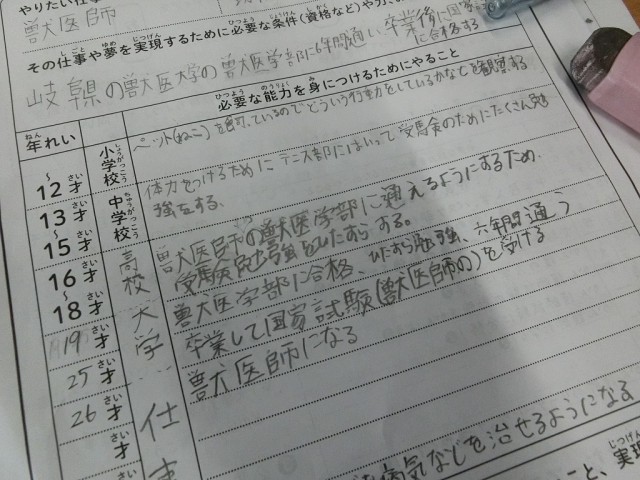 やりたい仕
獣医師
その仕事や夢を実現するために必要な条件(資格など)や力、
岐阜県の獣医大学の獣医学部に6年間通い、卒業後に国家
に合格する
必要な能力を身につけるためにやること
年れい
~12才
小学校
ペット(ねこ)を飼っているのでどういう行動をしているかなどを観察する
13~15才
中学校
体力をつけるためにテニス部にはいって受験のためにたくさん勉
強をする。
16~18才
高校
獣医師の獣医学部に通えるようにするため
受験勉強をひたすらする。
19才
大学
獣医学部に合格、ひたすら勉強、六年間通う
25才
卒業して国家試験(獣医師の)を受ける
26才
仕事
獣医師になる
才
才
病気などを治せるようになる
こと、実現